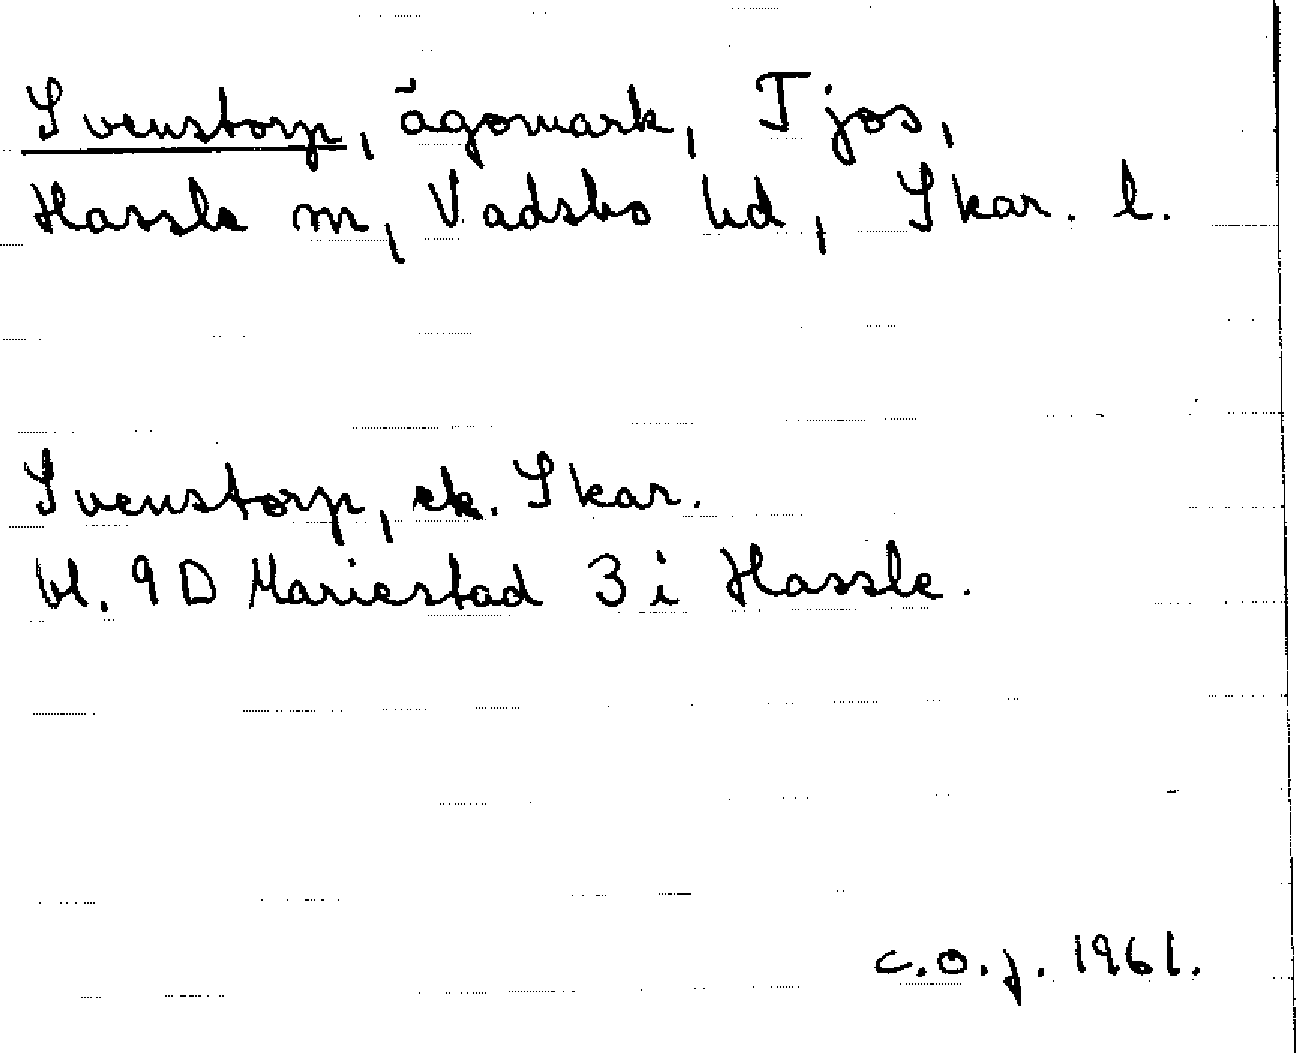 Svenstorp, ägomark, Tjos,
Hassle sn, Vadsbo hd, Skar. l.
Svenstorp, ek. Skar.
bl. 9D Mariestad 3 i Hassle.
C.O.J. 1961.